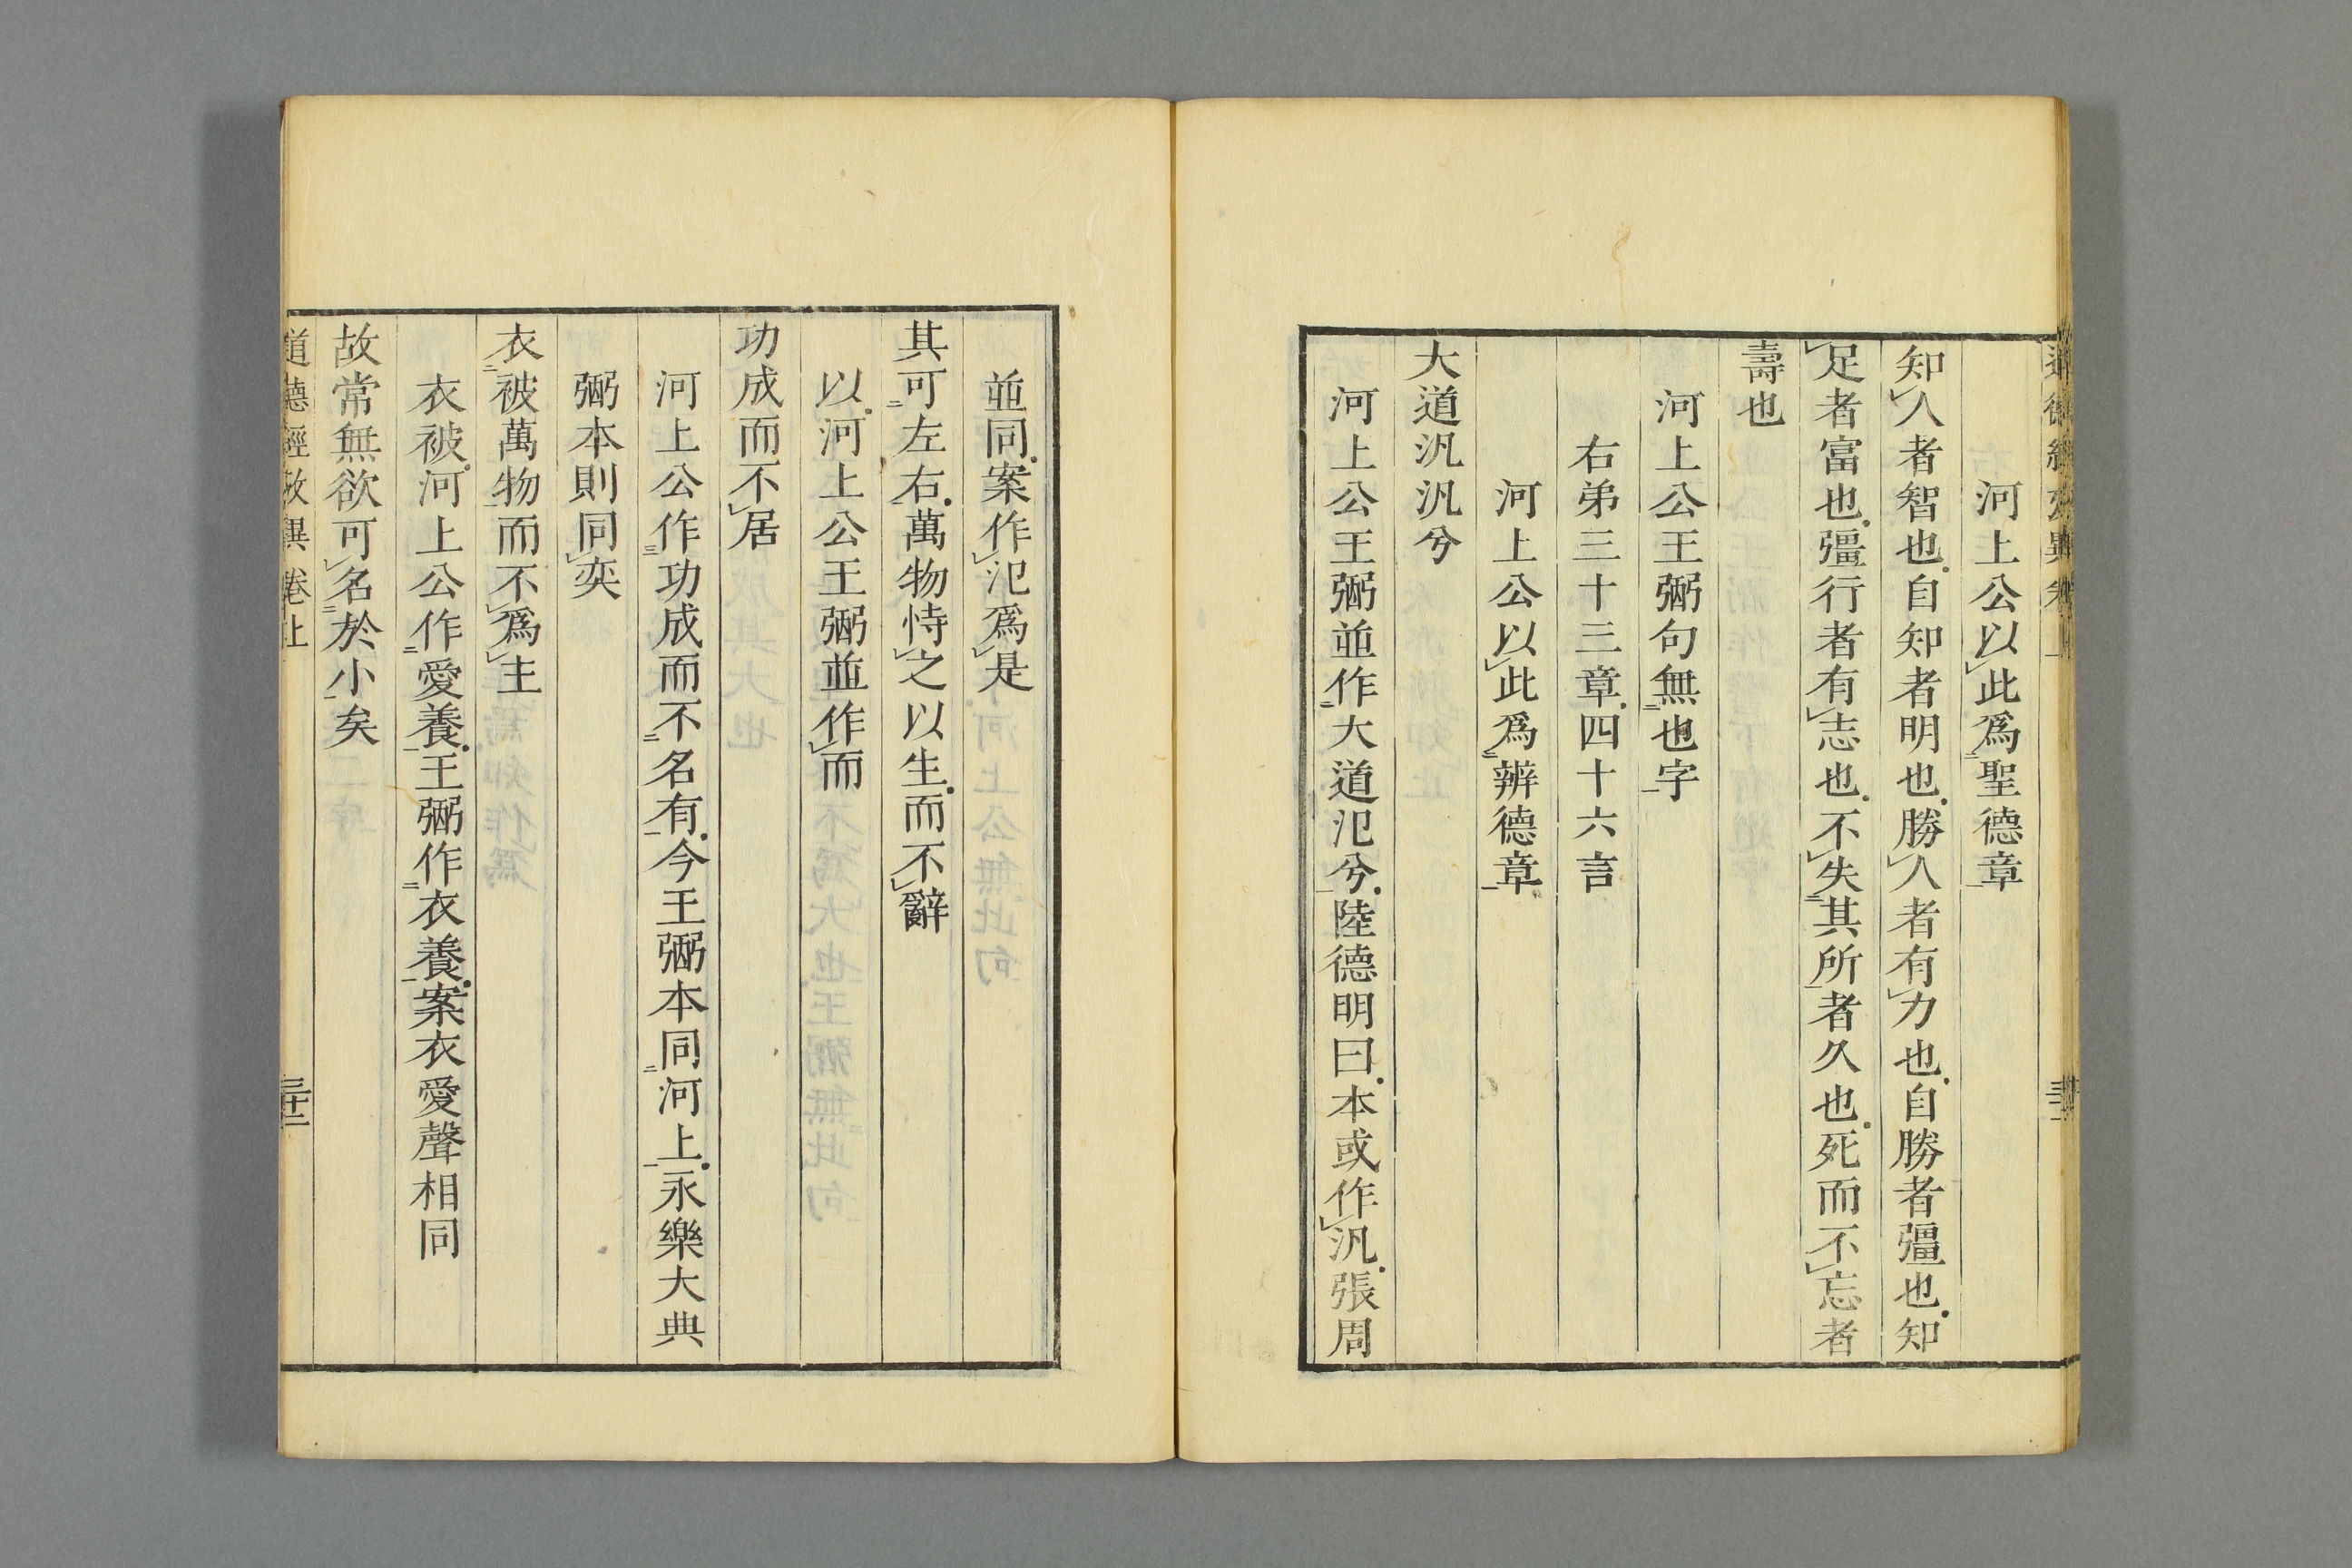 道德經攷異卷上
河上公以此爲聖德章
知人者智也自知者明也勝人者有力也自勝者彊也知
足者富也彊行者有志也不失其所者久也死而不忘者
壽也
河上公王弼句無也字
右弟三十三章四十六言
河上公以此爲辨德章
大道汎汎兮
河上公王弼並作大道氾兮陸德明曰本或作汎張周
並同案作氾爲是
其可左右萬物恃之以生而不辭
以河上公王弼並作而
功成而不居
河上公作功成而不名有今王弼本同河上永樂大典
弼本則同奕
衣被萬物而不爲主
衣被河上公作愛養王弼作衣養案衣愛聲相同
故常無欲可名於小矣
道德經攷異卷上